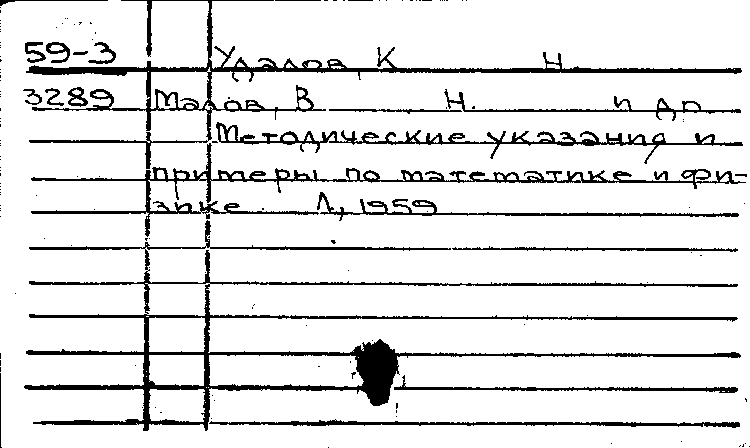 59-3 Удалов, К Н.
3289 Малов, В Н. и др
Методические указания и
примеры по математике и фи-
зике. Л, 1959